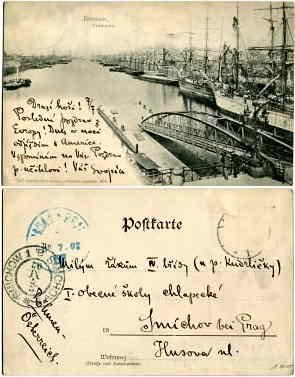 Drazí hoši!
Poslední pozdrav z
Evropy! Dnes v noci
odjíždím do Ameriky.
Vzpomínám na Vás. Pozdrav
p. učitelovi! Váš
Postkarte
7. 02
SMICHOW 1
Milým žákům IV. třídy (u p. Kudrličky)
I. obecné školy chlapecké
in Smíchov bei Prag
Wohnung Husova ul.
(Straße und Hausnummer)
Böhmen
Österreich